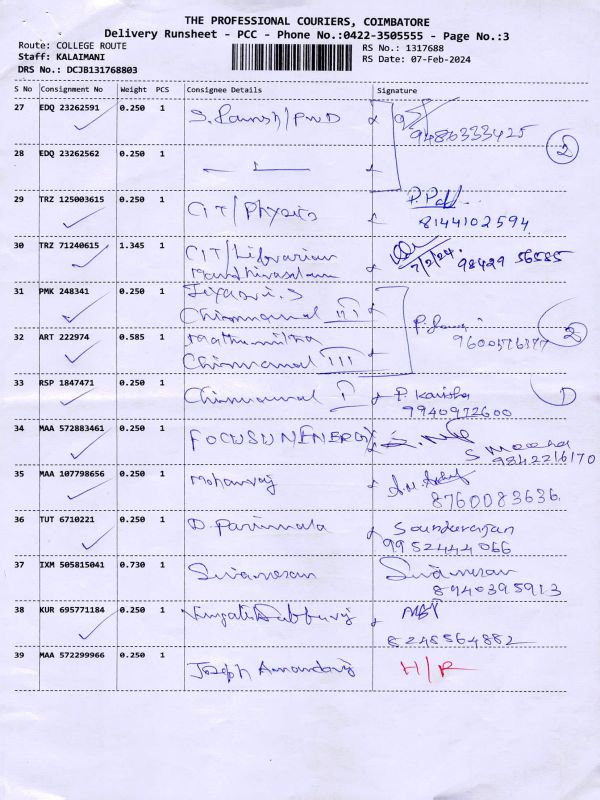 THE PROFESSIONAL COURIERS, COIMBATORE
Delivery Runsheet - PCC - Phone No.:0422-3505555 - Page No.:3
Route: COLLEGE ROUTE
Staff: KALAIMANI
DRS No.: DCJB131768803
RS No.: 1317688
RS Date: 07-Feb-2024
S No Consignment No Weight PCS Consignee Details Signature
27 EDQ 23262591 0.250 1
9486333425
2
28 EDQ 23262562 0.250 1
29 TRZ 125003615 0.250 1 CIT/Physics
8144102594
30 TRZ 71240615 1.345 1 CIT/Librarian
7/2/24. 98429 56585
31 PMK 248341 0.250 1
Chinnamal III
32 ART 222974 0.585 1
Chinnamal III
9600576377
2
33 RSP 1847471 0.250 1 Chinnamal I P. Karisha
9940972600
1
34 MAA 572883461 0.250 1 FOCUSUNENERGY
9842216170
35 MAA 107798656 0.250 1 Mohanraj
8760083636
36 TUT 6710221 0.250 1 D. Parimala Soundararajan
9952444066
37 IXM 505815041 0.730 1 Sivanesan Sivanesan
8940395913
38 KUR 695771184 0.250 1
8248564882
39 MAA 572299966 0.250 1 Joseph Amandaraj H/R